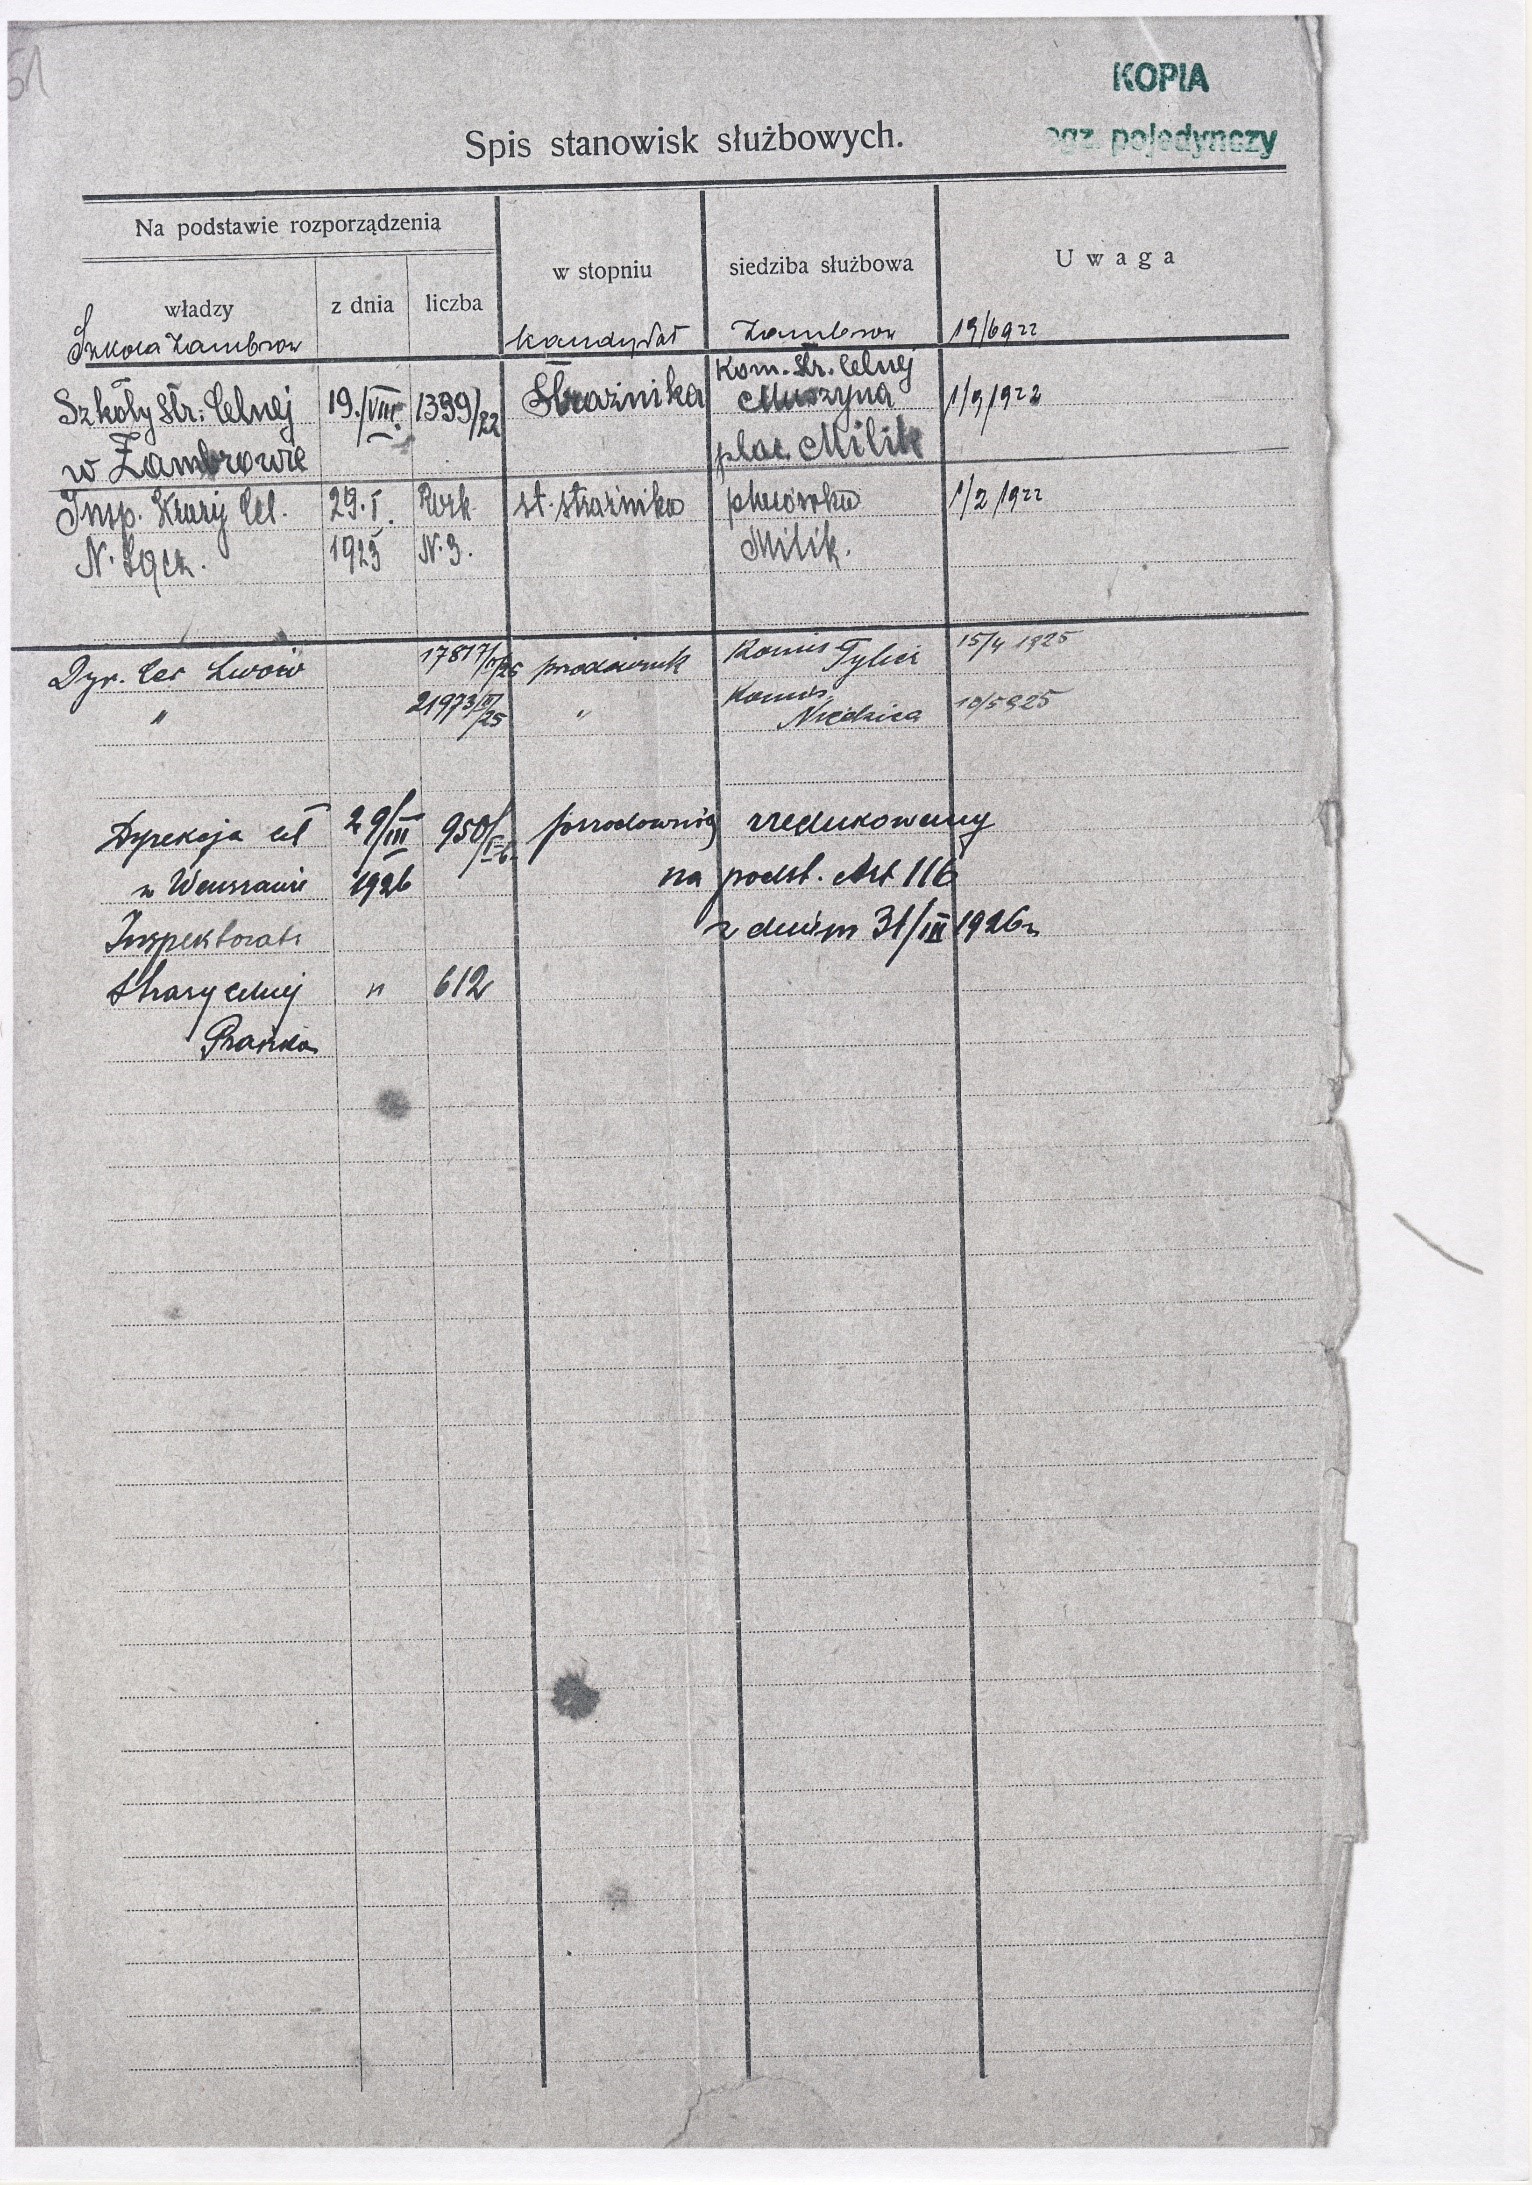 51
KOPIA
egz. pojedynczy
Spis stanowisk służbowych.
Na podstawie rozporządzenia
w stopniu
siedziba służbowa
Uwaga
władzy
z dnia
liczba
Szkoła Zambrow
kandydat
Zambrow
19/6922
Szkoły Str. Celnej
19./VIII.
1399/22
Strażnika
Kom. Str. Celnej
Muszyna
1/9/922
w Zambrowie
plac. Milik
Insp. Straży Cel.
29.I.
Rozk.
st. strażnika
placówka
1/2/1922
N. Sącz.
1925
N. 3.
Milik.
Dyr. Ceł Lwów
17817/25
przodownik
Komis Tylicz
15/4 1925
"
21973/25
"
Komis. Niedzica
10/5925
Dyrekcja Ceł
29/III
950/
przodownig
zredukowany
w Warszawie
1926
na podst. Art 116
Inspektorat
z dniem 31/III 1926r
Straży Celnej
"
612